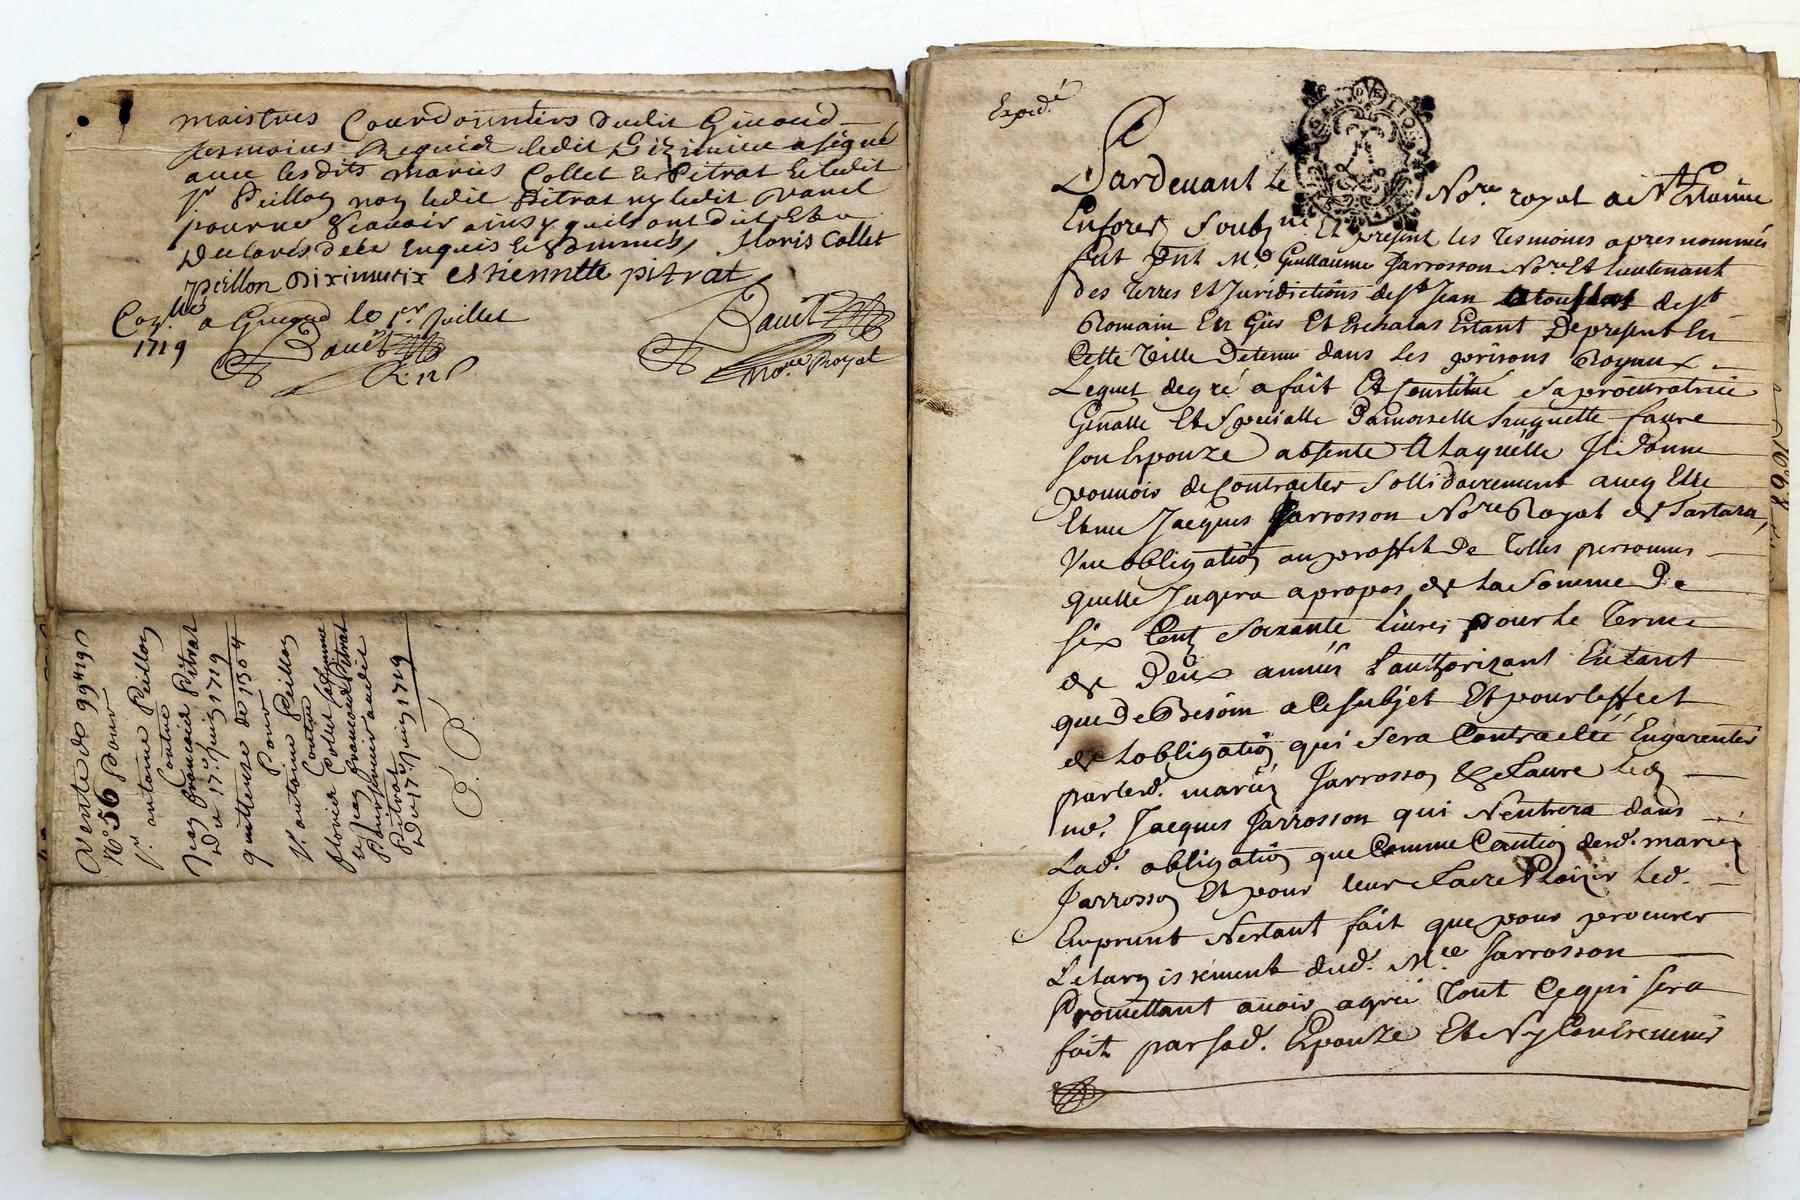 maistres Courdonniers dudit Giraud
tesmoins Requis ledit Diximieux a signé
avec lesdits mariés Collet et Pitrat et ledit
Sr Peillon non ledit Pitrat ny ledit
pour ne scavoir ainsy quils ont dit et
Declarés de ce Enquis et sommés floris Collet
peillon Diximieux estiennette pitrat
Con.llé a le 1er Juillet
1719
No.re Royal
Vente de 99# 19s
N° 56 Pour
Sr antoine Peillon
Contre
Jean françois Pitrat
Du 17e Juin 1719
quittense de 150# 4
Pour
Sr antoine Peillon
Contre
floris Collet sa femme
et Jean françois Pitrat
Pitrat
Du 17e Juin 1719
Expedié
Pardevant le No.re royal a St Estienne
En forest Soubz.né Et present les Tesmoins apres nommés
fut pnt Me Guillaume Jarrosson No.re Et lieutenant
des Terres Et Juridictions de St Jean de St
Romain En Gis Et Eschalas Estant De present En
Cette Ville Detenu dans les prisons Royaux
Lequel de gré a fait Et Constitué sa procuratrice
Gñalle Et Speciale Damoiselle huguette faure
son Epouze absente A laquelle Il donne
pouvoir de Contracter sollidairement avec Elle
Et me Jacques Jarrosson No.re Royal de Tartara,
Une obligation au proffit de Telles personnes
quelle Jugera apropos de la Somme De
six Cent soixante livres pour le Terme
de Deux années Lauthorizant En tant
que De Besoin a Ce subjet Et pour leffect
de lobligation qui sera Contractée
par lesd. mariés Jarrosson & faure led.
me. Jacques Jarrosson qui N'entrera dans
Lad. obligation que Comme Caution desd. mariés
Jarrosson Et pour leur faire Plaizir led.
Emprunt N'estant fait que pour procurer
L'elargissement dud. Me Jarrosson
Promettant avoir agréé Tout Ce qui sera
fait par sad. Epouze Et N'y Contrevenir